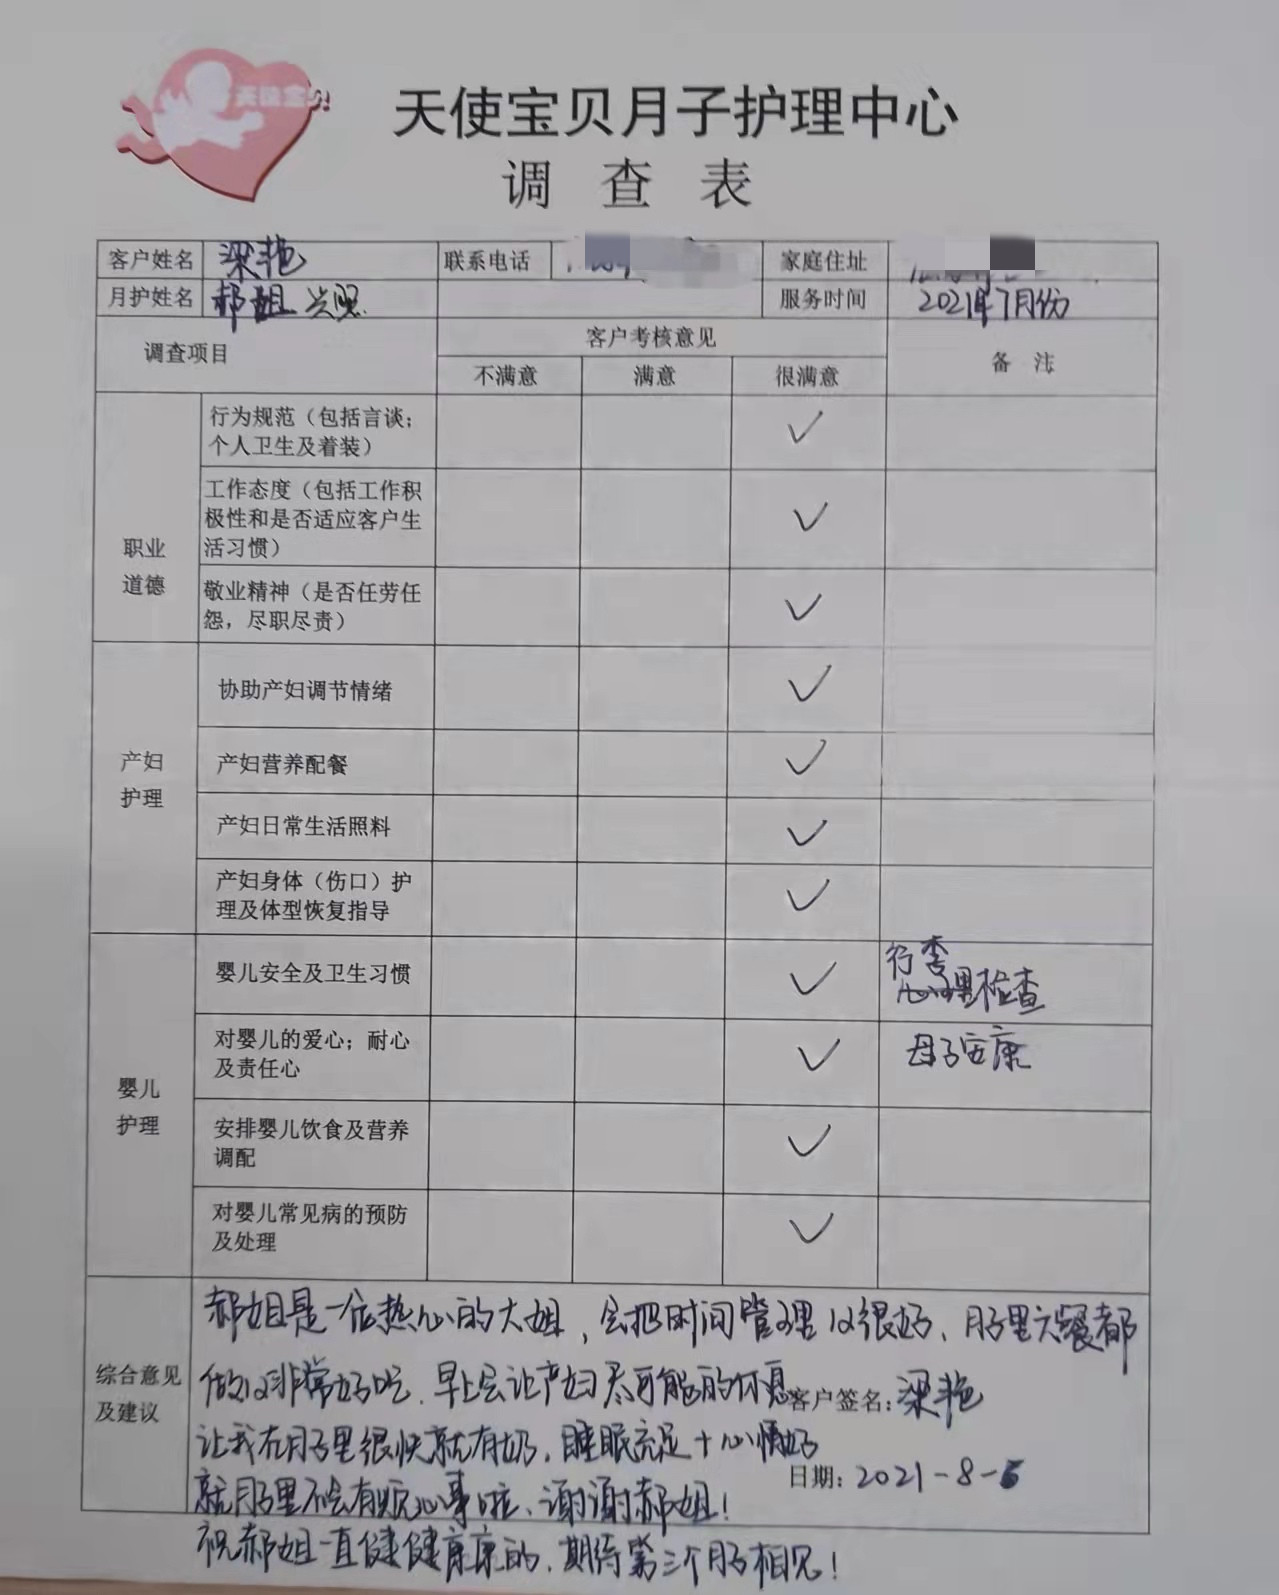 天使宝贝
天使宝贝月子护理中心
调 查 表
客户姓名 梁艳 联系电话 家庭住址
月护姓名 郝姐 服务时间 2021年7月份
调查项目 客户考核意见 备 注
不满意 满意 很满意
职业道德
行为规范（包括言谈；
个人卫生及着装） ✓
工作态度（包括工作积
极性和是否适应客户生
活习惯） ✓
敬业精神（是否任劳任
怨，尽职尽责） ✓
产妇护理
协助产妇调节情绪 ✓
产妇营养配餐 ✓
产妇日常生活照料 ✓
产妇身体（伤口）护
理及体型恢复指导 ✓
婴儿护理
婴儿安全及卫生习惯 ✓ 检查
对婴儿的爱心；耐心
及责任心 ✓ 母子安康
安排婴儿饮食及营养
调配 ✓
对婴儿常见病的预防
及处理 ✓
综合意见
及建议
郝姐是一位热心的大姐，会把时间管理的很好、月子里六餐都
做的非常好吃．早上会让产妇尽可能的休息
客户签名：梁艳
让我在月子里很快就有奶．睡眠充足＋心情好
日期：2021-8-5
就月子里不会有烦心事啦、谢谢郝姐！
祝郝姐一直健健康康的．期待第三个月子相见！